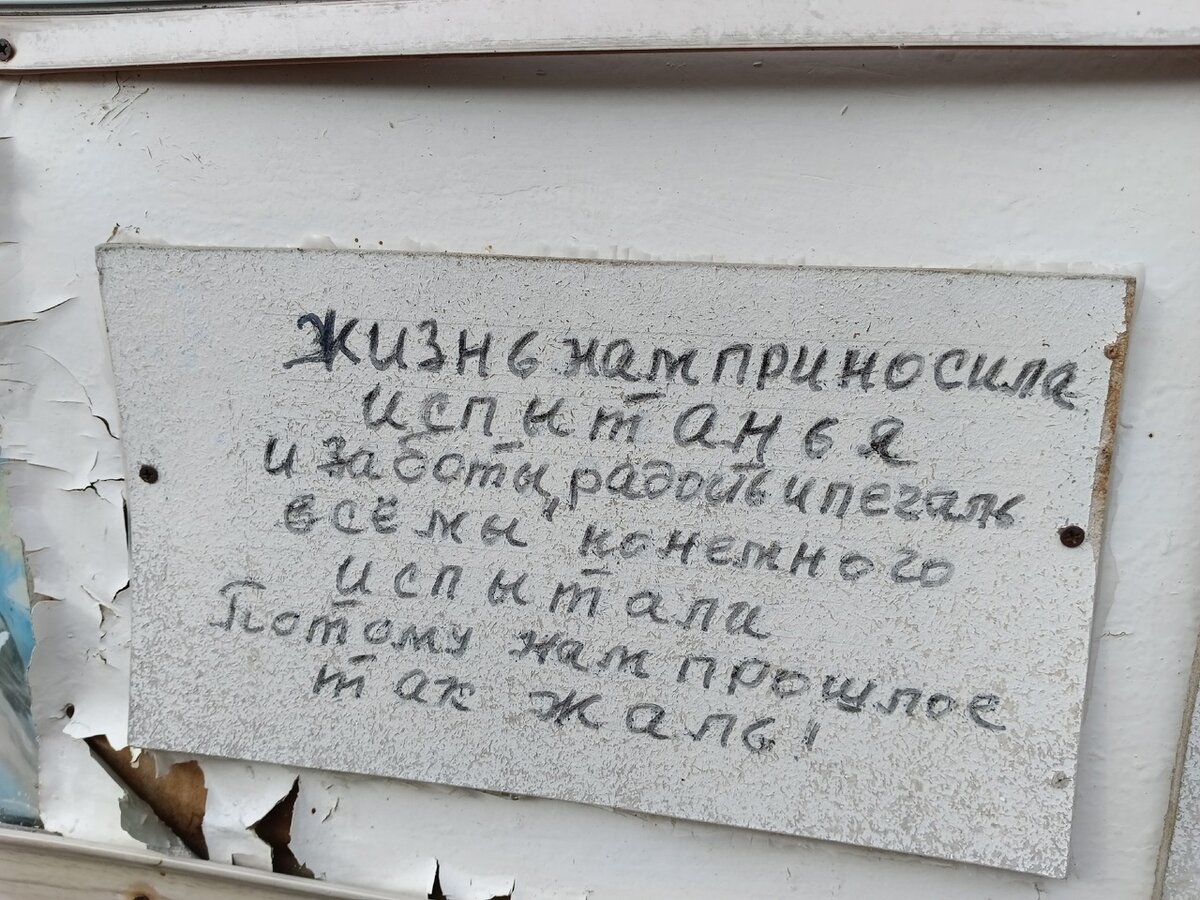 Жизнь нам приносила
испытанья
и заботы, радость и печаль
всё мы немного
испытали
Потому нам прошлое
так жаль!